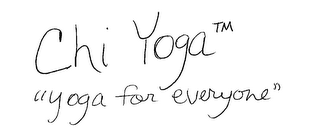 Chi Yoga™
"yoga for everyone"